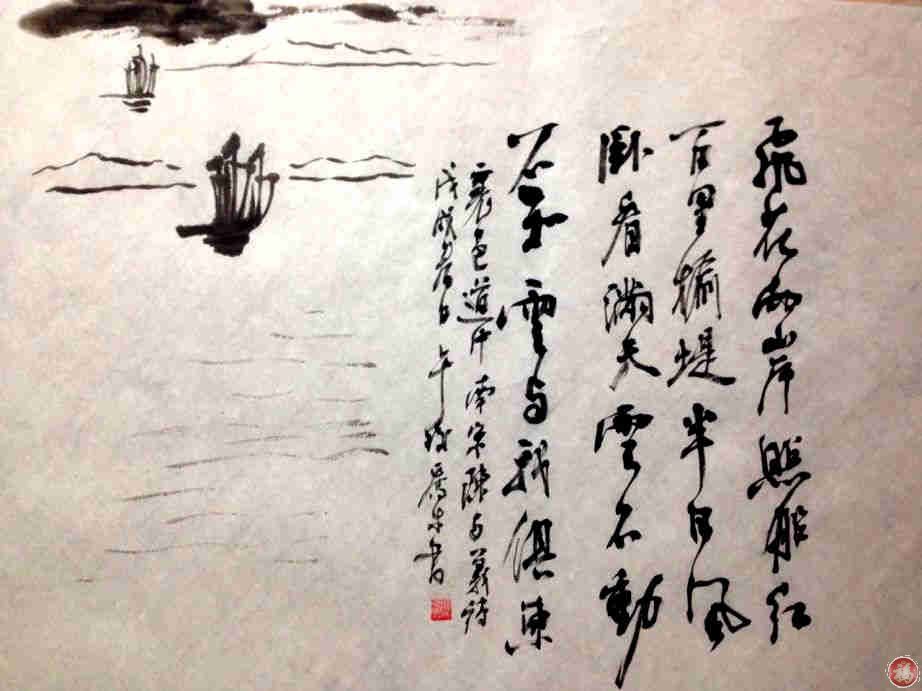 飛花两岸照船紅
百里榆堤半日風
卧看滿天雲不動
不知雲与我俱東
襄邑道中 南宋陳与義詩
戊戌春日午後
書
福